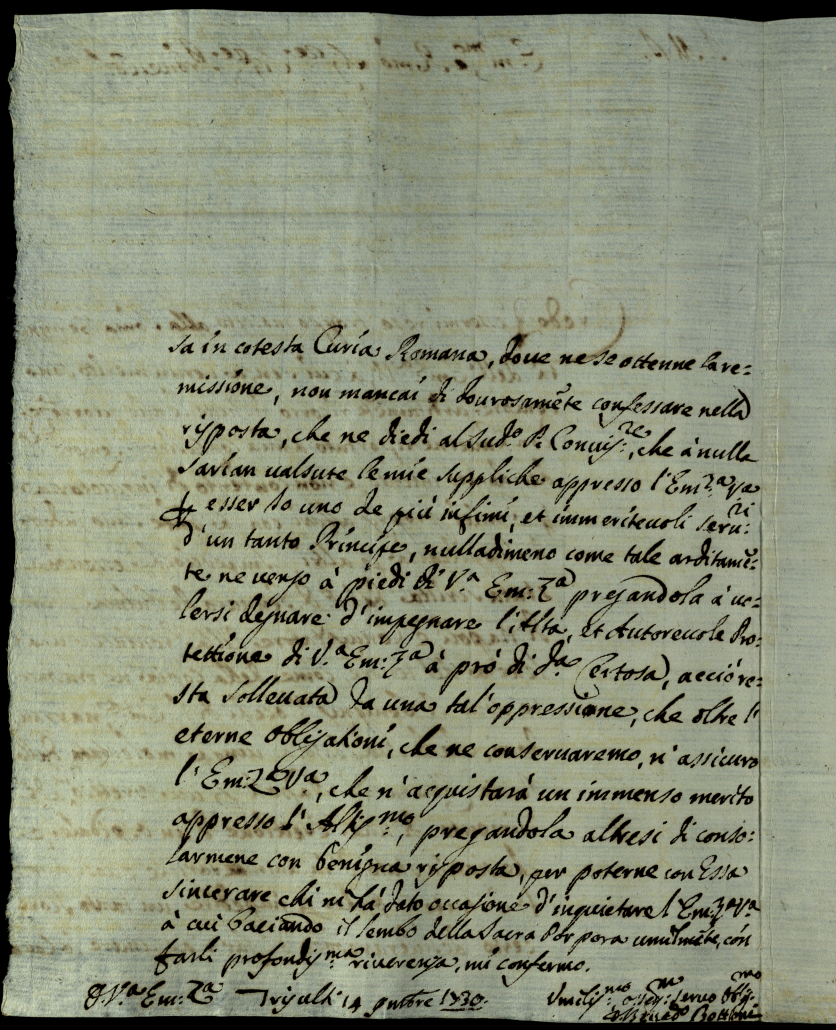 sa in cotesta Curia Romana, doue ne se ottenne la re=
missione, non mancai di dourosamẽte confessare nella
risposta, che ne diedi al Sud.º P. Conuis.re, che à nulla
sarian ualsute le mie suppliche appresso l'Em.za Va
esser Io uno de più infimi, et immeriteuoli seru.ri
d'un tanto Principe, nulladimeno come tale arditamẽ=
te ne uengo à piedi di V.a Em:za pregandola à uo=
lersi degnare d'impegnare l'Alta, et Autoreuole Pro=
tettione di V.a Em:za à prò di d.a Certosa, acciò re=
sta solleuata da una tal'oppressione, che oltre l'
eterne obligationi, che ne conseruaremo, n'assicuro
l'Em:za Va, che n'acquistarà un immenso merito
appresso l'Altis.mo, pregandola altresi di conso=
larmene con benigna risposta, per poterne con Essa
sincerare chi ni hà dato occasione d'inquietare l'Em:za Va
à cui baciando il lembo della Sacra Porpora umilmẽte, cõn
farli profondis.ma riuerenza, mi confermo.
D V.a Em:za Trisulti 14 1730.
Vmilis.mo Seruo Oblig.mo